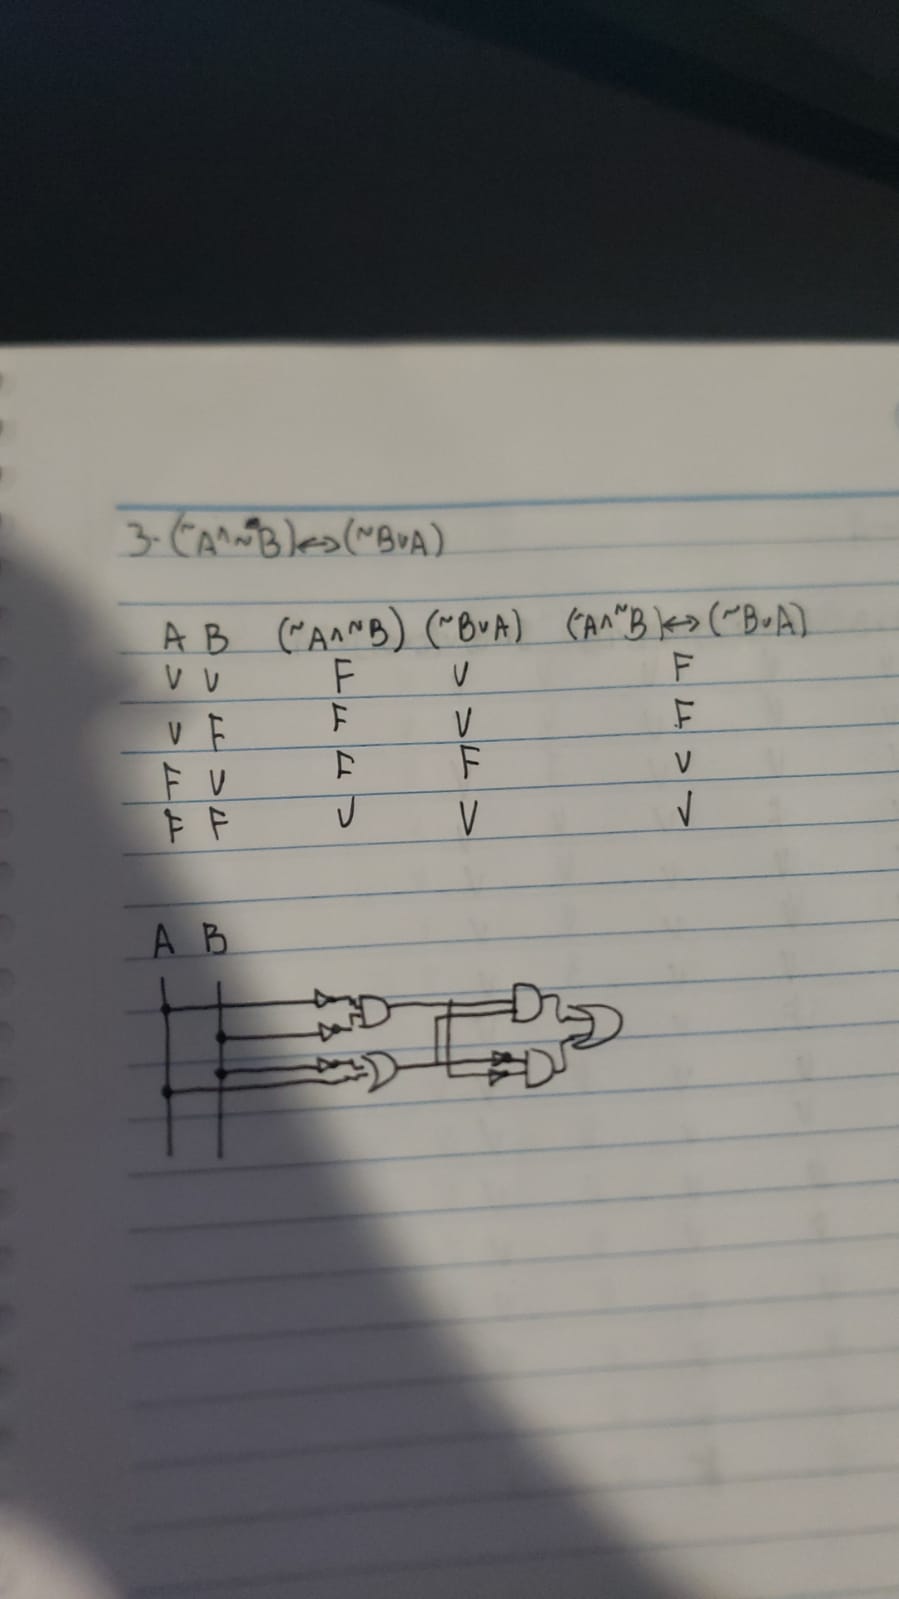 3-(~A∧~B)↔(~B∨A)
A B (~A∧~B) (~B∨A) (~A∧~B)↔(~B∨A)
V V F V F
V F F V F
F V F F V
F F V V V
A B